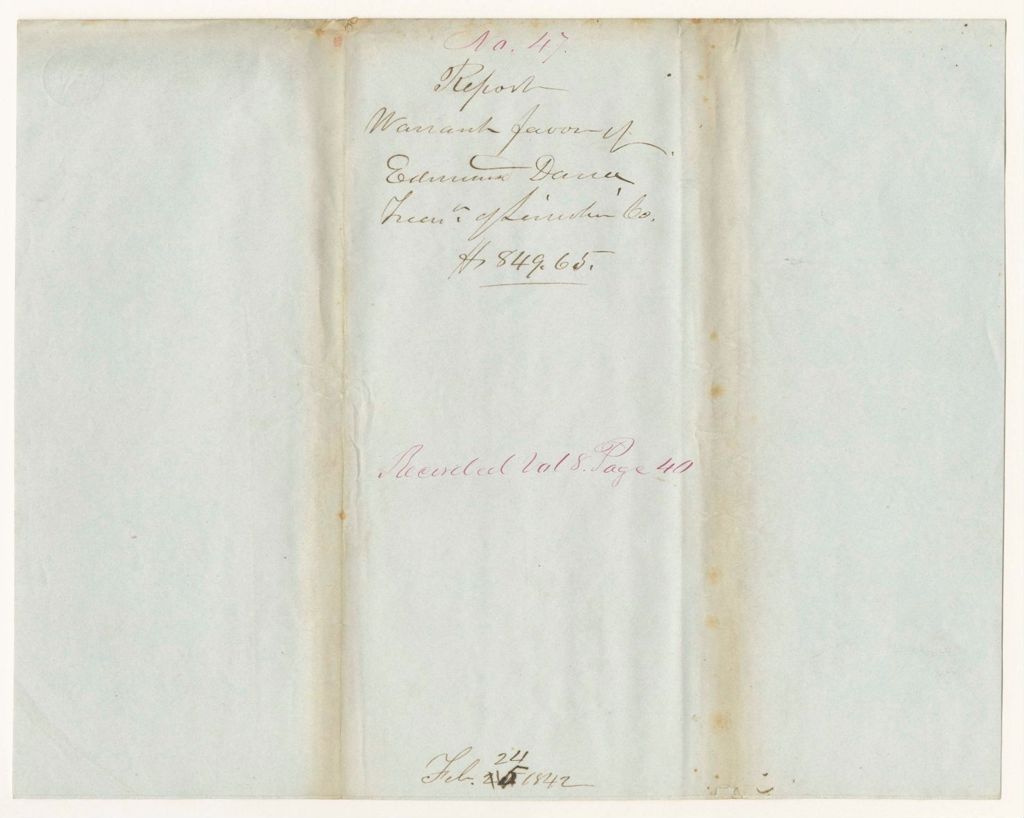 No. 47.
Report
Warrant favor of
Edmund Dana
Treasr. of Lincoln Co.
$849.65.
Recorded Vol 8. Page 40
Feb. 24 1842